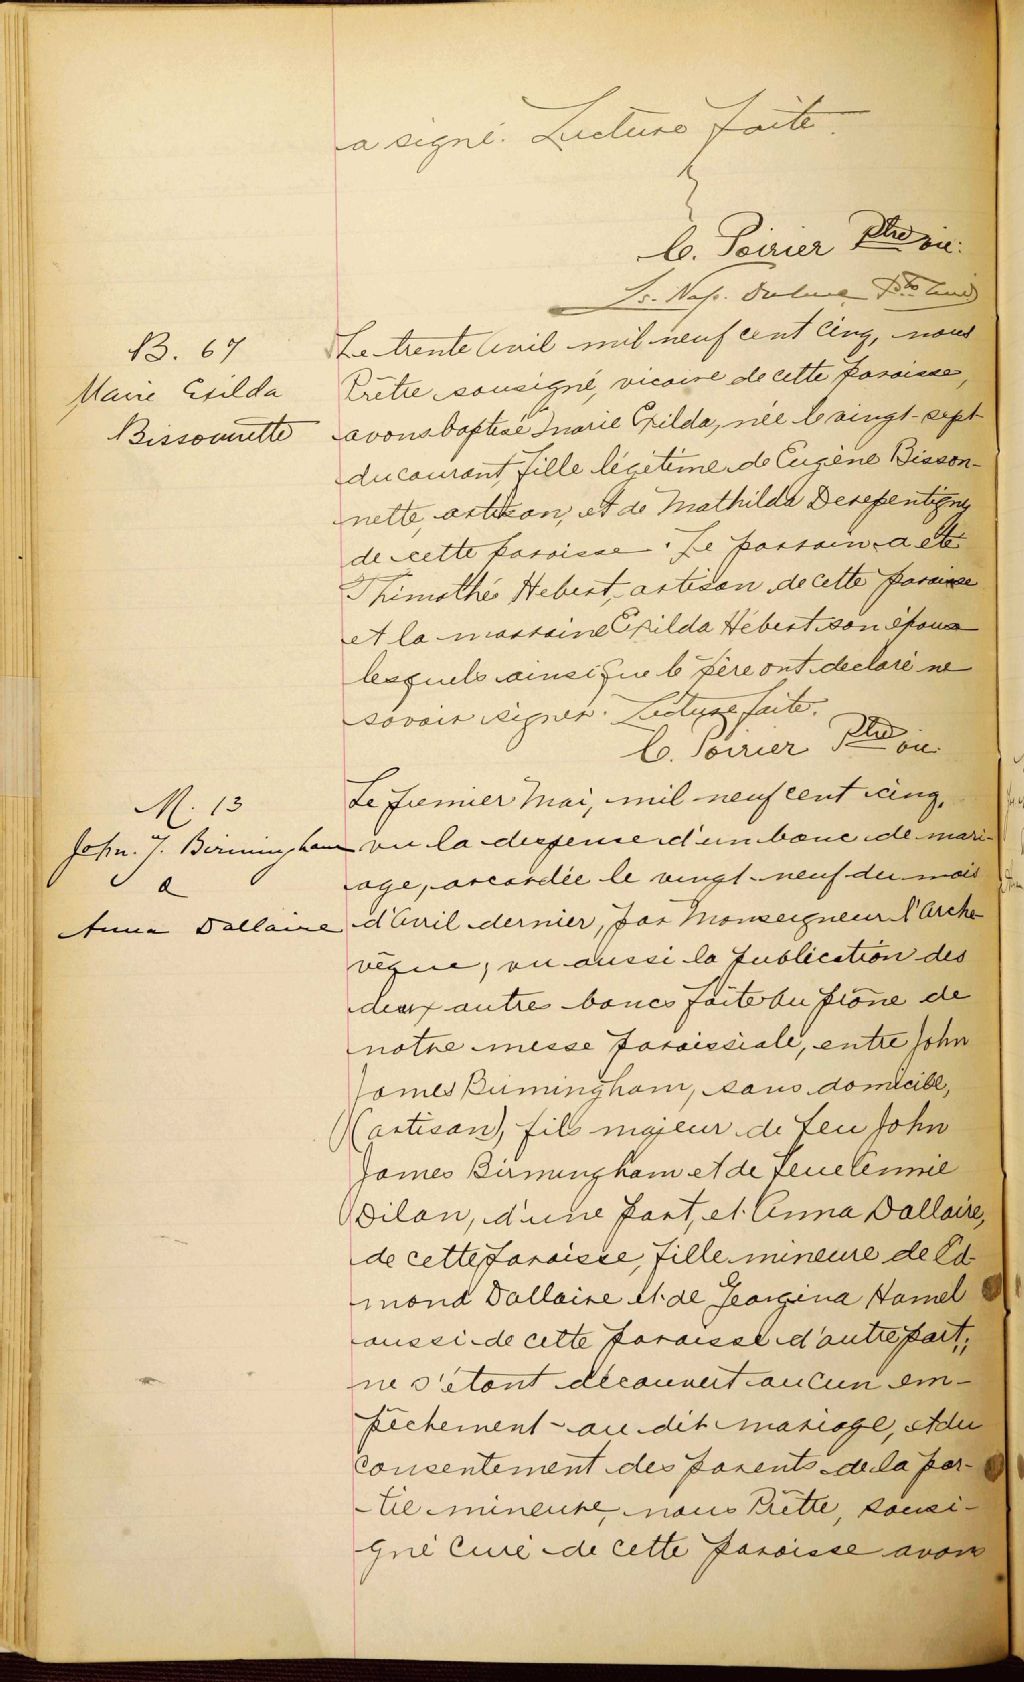 a signé. Lecture faite.
C. Poirier Ptre vic:
Ls. Nap. Ptre
B. 67
Marie Exilda
Bissonnette
Le trente Avril mil neuf cent cinq, nous
Prêtre sousigné, vicaire de cette paroisse,
avons baptisé Marie Exilda, née le vingt-sept
du courant, fille légitime de Eugène Bisson-
nette, artisan, et de Mathilda Derepentigny
de cette paroisse. Le parrain a été
Thimothé Hebert, artisan de cette paroisse
et la marraine Exilda Hébert son épouse
lesquels ainsi que le père ont declaré ne
savoir signer. Lecture faite.
C. Poirier Ptre vic.
M. 13
John. J. Birmingham
&
Anna Dallaire
Le premier Mai, mil neuf cent cinq,
vu la dispense d'un banc de mari-
age, accordée le vingt-neuf du mois
d'Avril dernier, par Monseigneur l'Arche-
vêque, vu aussi la publication des
deux autres bancs faite au prône de
notre messe paroissiale, entre John
James Birmingham, sans domicile,
(artisan), fils majeur de feu John
James Birmingham et de feue Annie
Dilan, d'une part, et Anna Dallaire,
de cette paroisse, fille mineure de Ed-
mond Dallaire et de Georgina Hamel
aussi de cette paroisse d'autre part;
ne s'étant découvert aucun em-
pêchement au dit mariage, et du
consentement des parents de la par-
-tie mineure, nous Prêtre, sousi-
gné Curé de cette paroisse avons